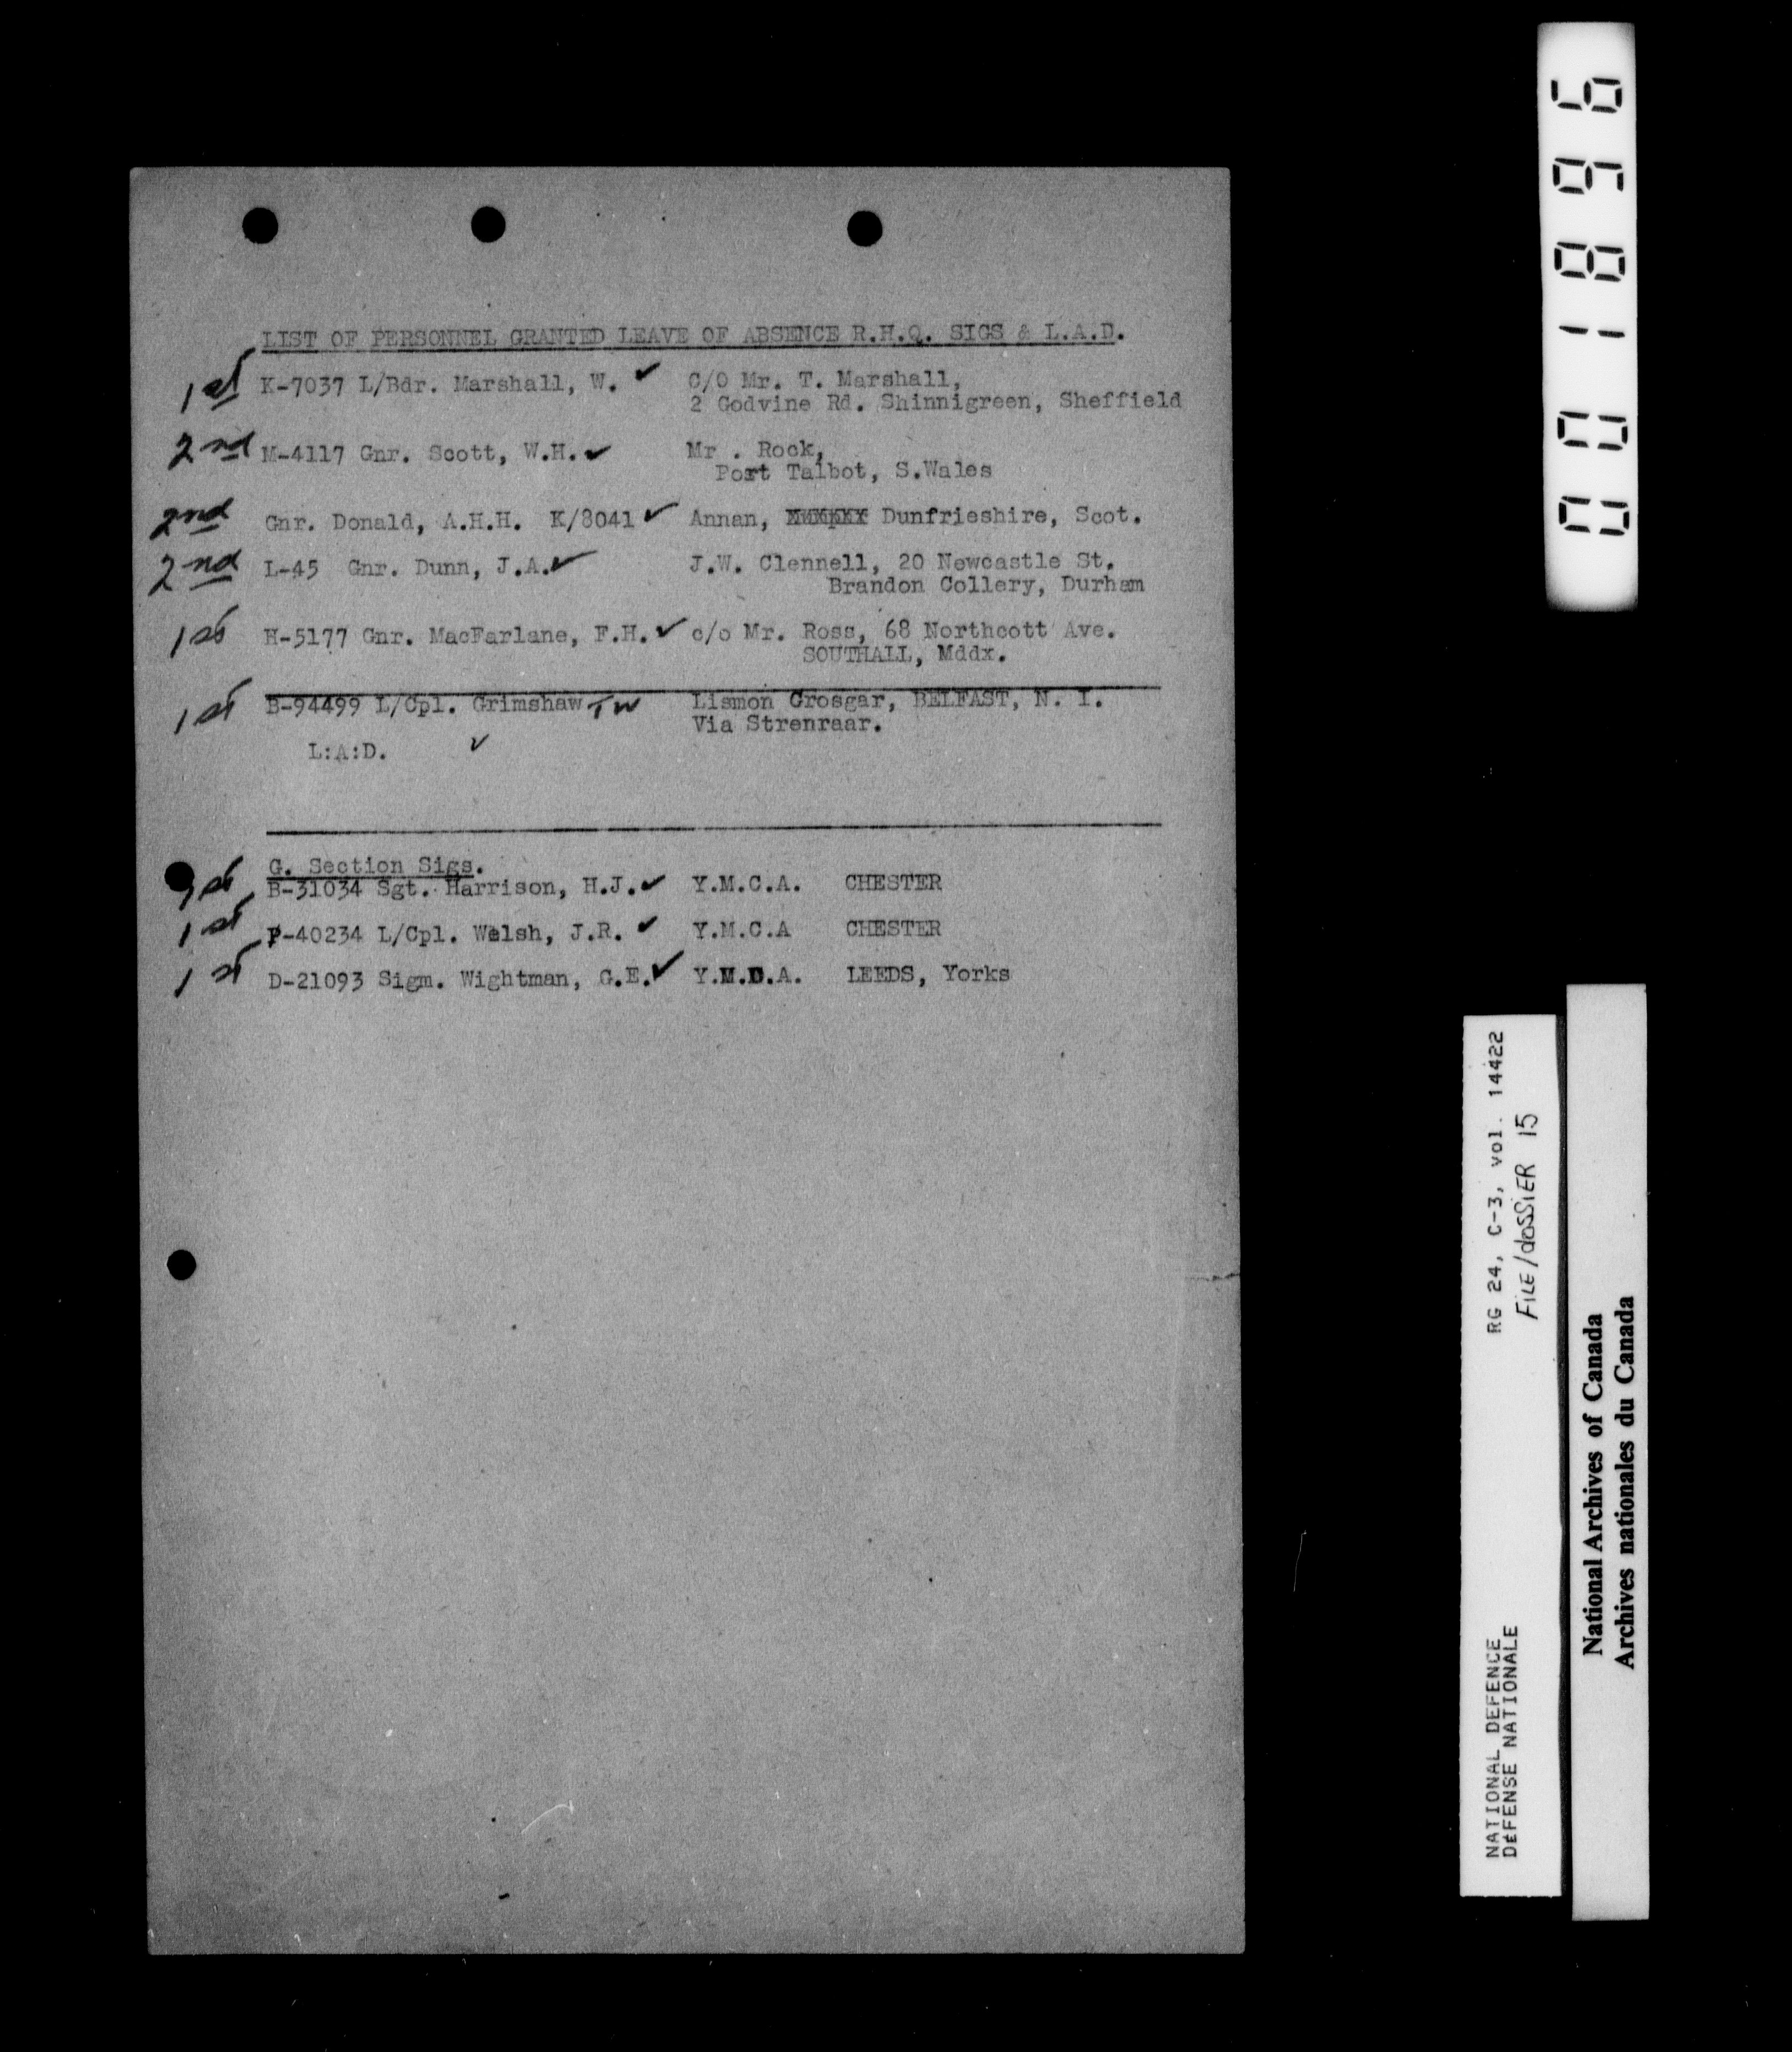 LIST OF PERSONNEL GRANTED LEAVE OF ABSENCE R.H.Q. SIGS & L.A.D.
1st K-7037 L/Bdr. Marshall, W. ✓ C/O Mr. T. Marshall,
2 Godvine Rd. Shinnigreen, Sheffield
2nd M-4117 Gnr. Scott, W.H. ✓ Mr . Rock,
Port Talbot, S.Wales
2nd Gnr. Donald, A.H.H. K/8041 ✓ Annan, Dunfrieshire, Scot.
2nd L-45 Gnr. Dunn, J.A. ✓ J.W. Clennell, 20 Newcastle St.
Brandon Collery, Durham
1st H-5177 Gnr. MacFarlane, F.H. ✓ c/o Mr. Ross, 68 Northcott Ave.
SOUTHALL, Mddx.
1st B-94499 L/Cpl. Grimshaw TW Lismon Crosgar, BELFAST, N. I.
Via Strenraar.
L:A:D. ✓
G. Section Sigs.
1st B-31034 Sgt. Harrison, H.J. ✓ Y.M.C.A. CHESTER
1st P-40234 L/Cpl. Walsh, J.R. ✓ Y.M.C.A CHESTER
1st D-21093 Sigm. Wightman, G.E. ✓ Y.M.C.A. LEEDS, Yorks
001896
RG 24, C-3, vol. 14422
FILE/dOSSIER 15
NATIONAL DEFENCE
DÉFENSE NATIONALE
National Archives of Canada
Archives nationales du Canada